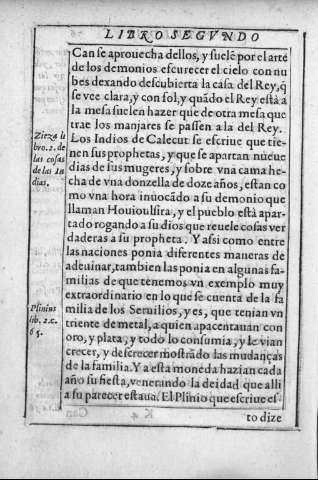 LIBRO SEGVNDO
Can se aprouecha dellos, y suelẽ por el arte
de los demonios escurecer el cielo con nu
bes dexando descubierta la casa del Rey, q̃
se vee clara, y con sol, y quãdo el Rey està a
la mesa suelen hazer que de otra mesa que
trae los manjares se passen a la del Rey.
Los Indios de Calecut se escriue que tie-
nen sus prophetas, y que se apartan nueue
dias de sus mugeres, y sobre vna cama he-
cha de vna donzella de doze años, estan co
mo vna hora inuocãdo a su demonio que
llaman Houioulsira, y el pueblo està apar-
tado rogando a su dios que reuele cosas ver
daderas a su propheta. Y assi como entre
las naciones ponia diferentes maneras de
adeuinar, tambien las ponia en algunas fa-
milias de que tenemos vn exemplo muy
extraordinario en lo que se cuenta de la fa
milia de los Seruilios, y es, que tenian vn
triente de metal, a quien apacentauan con
oro, y plata, y todo lo consumia, y le vian
crecer, y descrecer mostrãdo las mudanças
de la familia. Y a esta moneda hazian cada
año su fiesta, venerando la deidad que alli
a su parecer estaua. El Plinio que escriue es-
to dize
Ziezа li
bro. 2. de
las cosas
de las In
dias.
Plinius
lib. 2. c.
65.